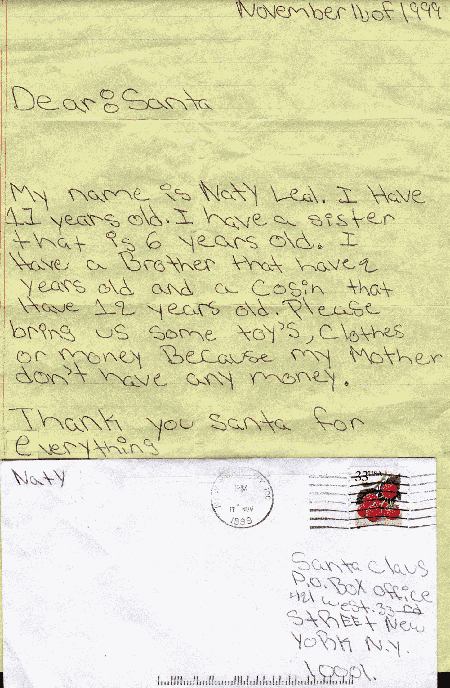 November 11, of 1999
Dear: Santa
My name is Naty Leal. I Have
11 years old. I have a sister
that is 6 years old. I
Have a Brother that have 2
years old and a Cosin that
Have 12 years old. Please
bring us some toy's, Clothes
or money Because my Mother
don't have any money.
Thank you Santa for
Everything
Naty
33 USA
PM
17 NOV
1999
Santa Claus
P.O. BOX Office
421 West. 33 rd
STREET New
YORK N.Y.
10001.